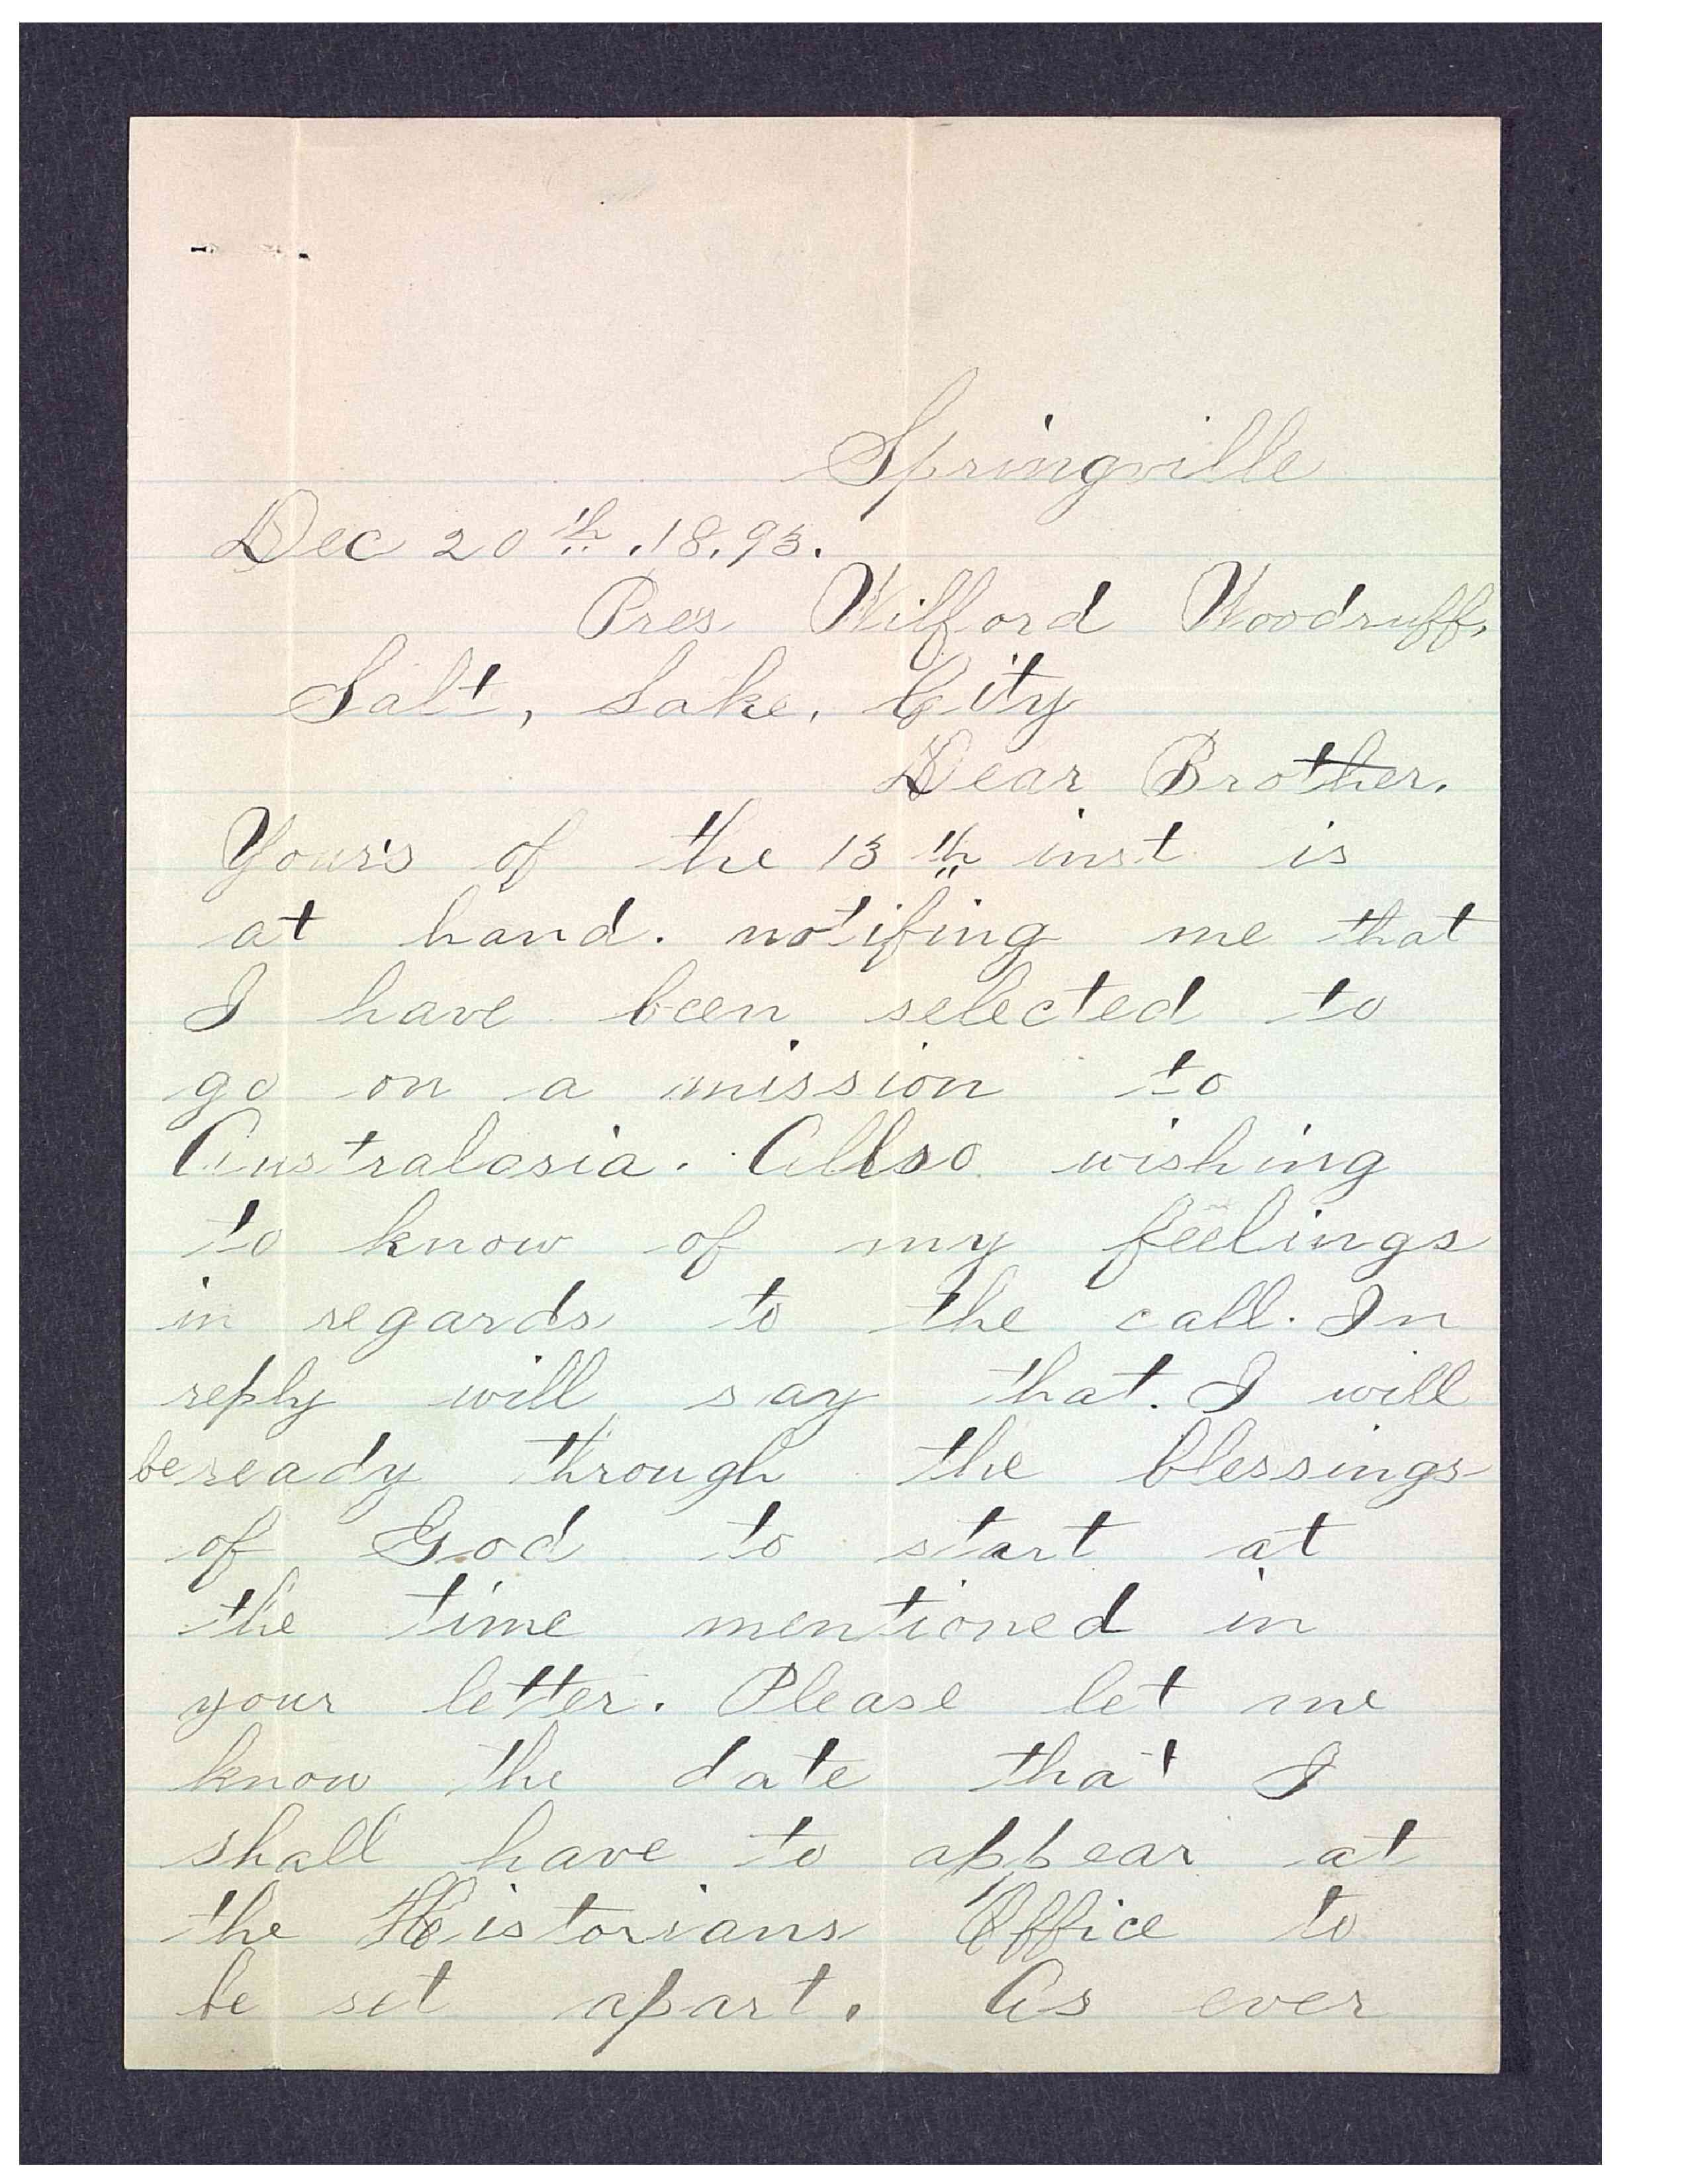 Springville
Dec 20th. 18.93.
Pres Wilford Woodruff,
Salt, Lake, City
Dear Brother.
Your's of the 13th inst is
at hand. notifing me that
I have been selected to
go on a mission to
Australasia. Allso wishing
to know of my feelings
in regards to the call. In
reply will say that. I will
be ready through the blessings
of God to start at
the time mentioned in
your letter. Please let me
know the date that I
shall have to appear at
the Historians Office to
be set apart. As ever